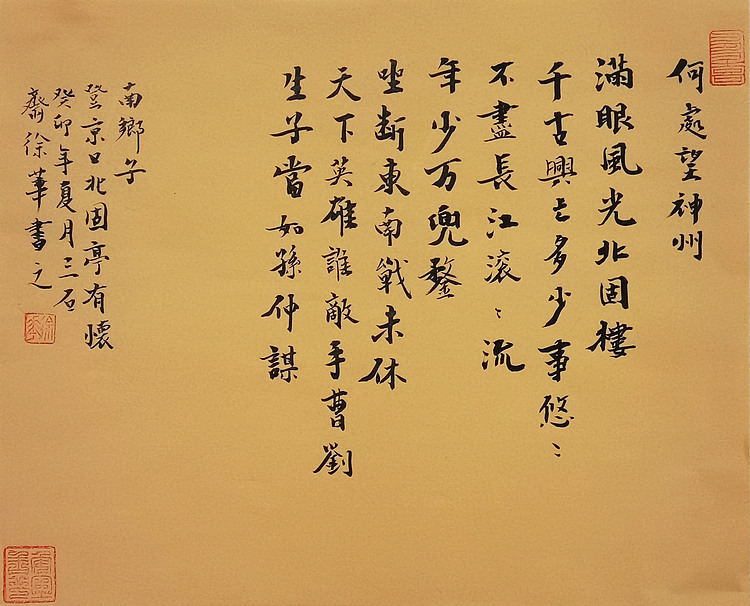 何處望神州
滿眼風光北固樓
千古興亡多少事悠〻
不盡長江滚〻流
年少万兜鍪
坐斷東南戰未休
天下英雄誰敵手曹劉
生子當如孫仲謀
南鄉子
登京口北固亭有懷
癸卯年夏月三石
齋徐華書之